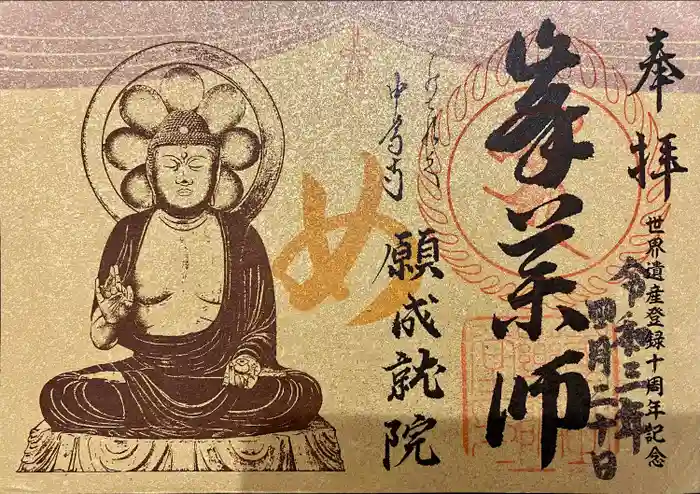 奉拝
世界遺産登録十周年記念
令和三年
四月二十日
峯薬師
中尊寺
願成就院